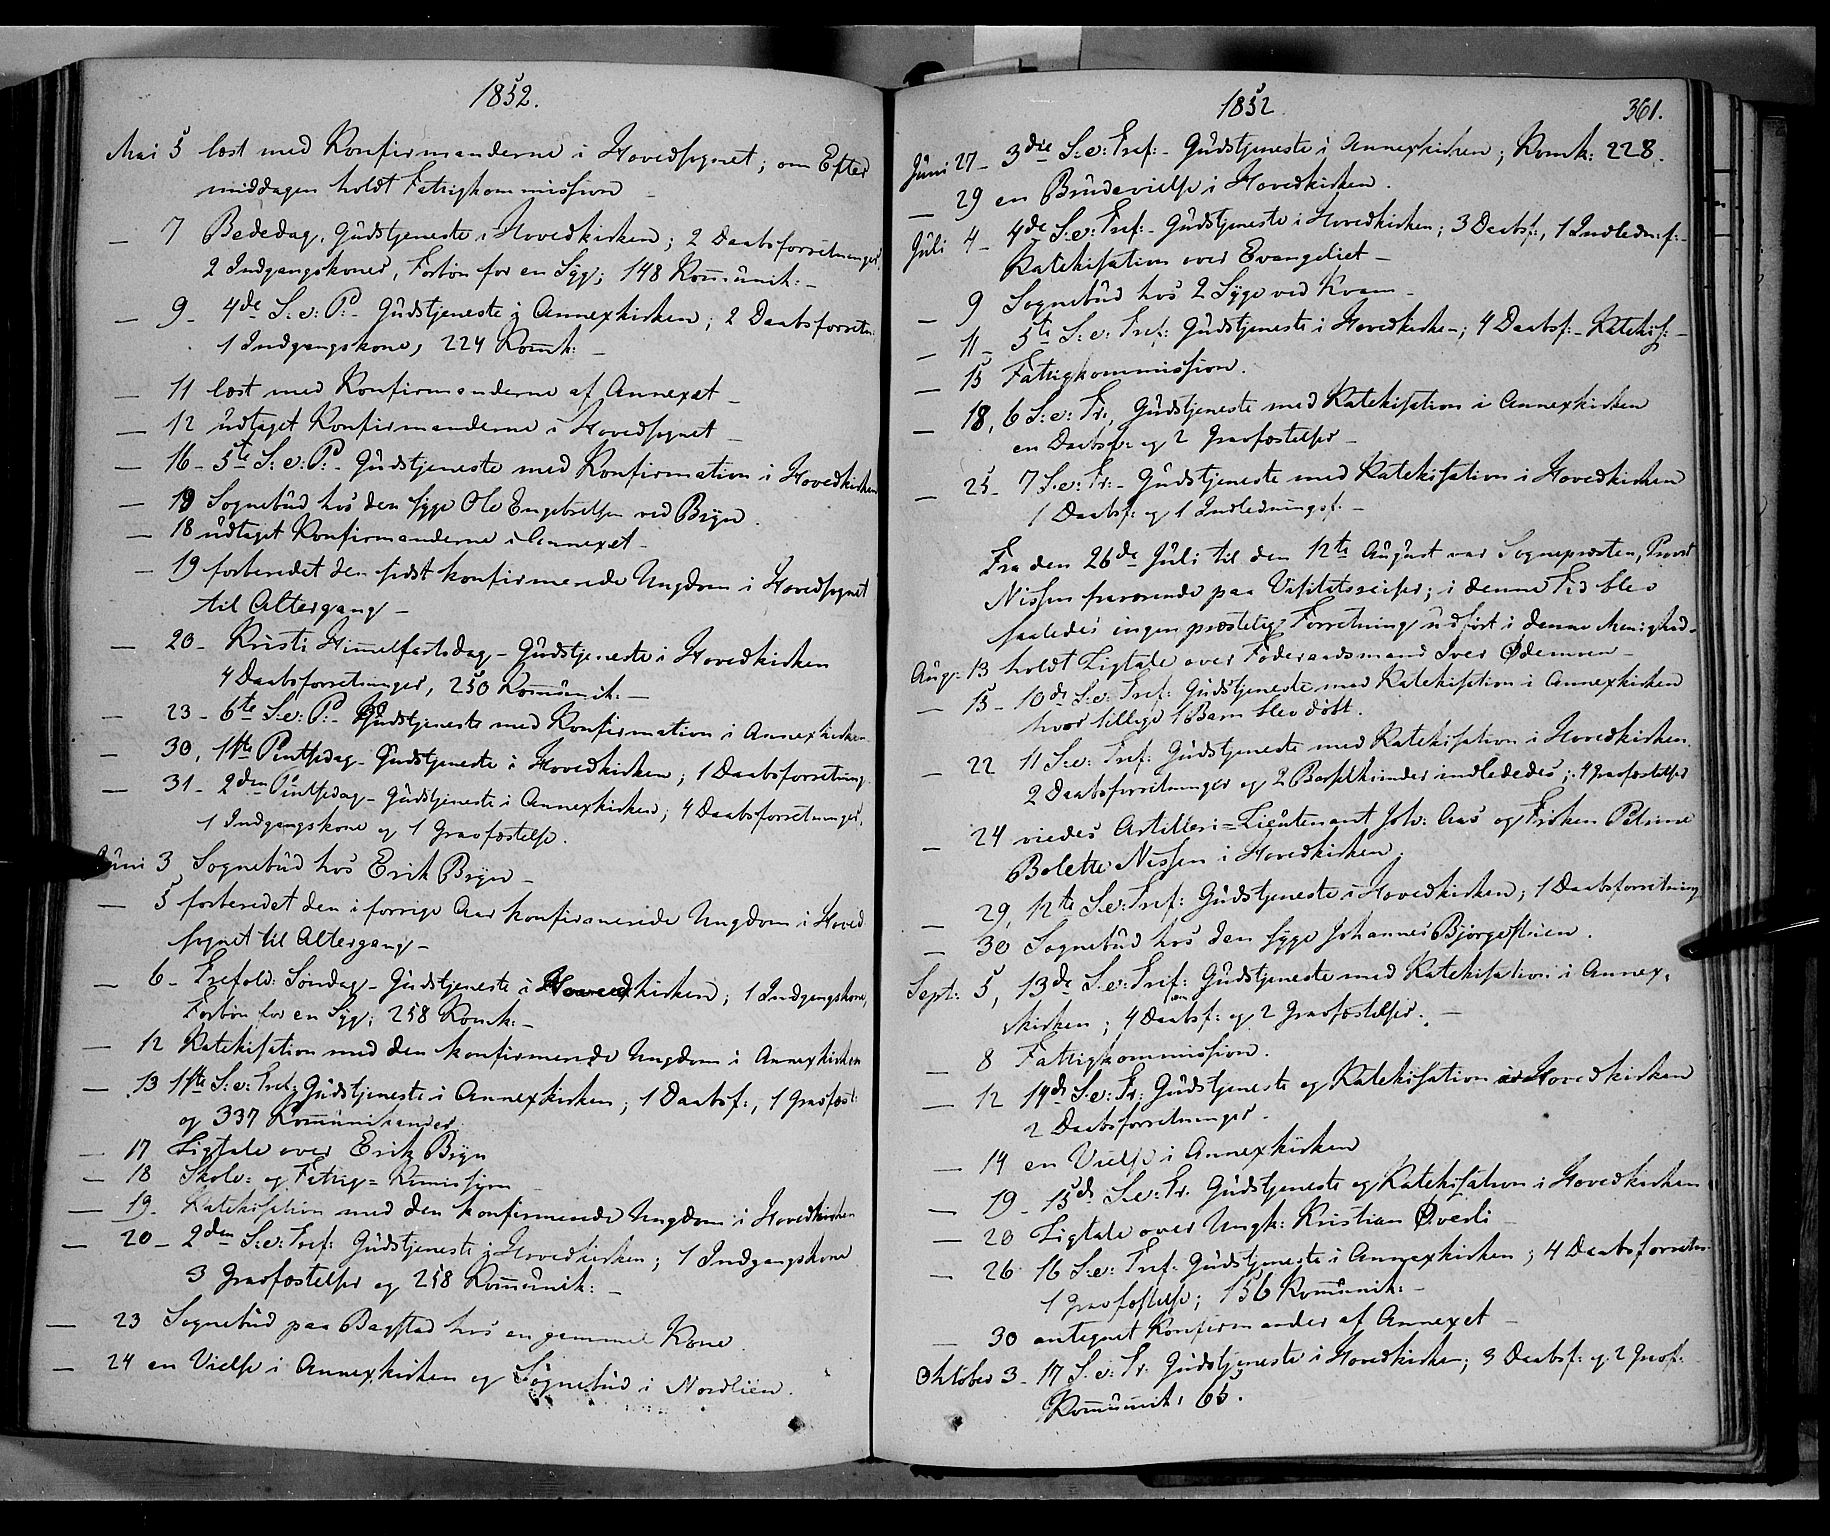 1852.
Mai 5 læst med Konfirmanderne i Hovedsognet; om Efter
middagen holdt Fattigkommission –
— 7 Bededag, Gudstjeneste i Hovedkirken; 2 Daabsforretninger,
2 Indgangskoner, Forbøn for en Syg; 148 Kommunik: –
— 9 – 4de S: e: P: – Gudstjeneste i Annexkirken; 2 Daabsforretn:
1 Indgangskone, 224 Komk: –
— 11 læst med Konfirmanderne af Annexet –
— 12 udtaget Konfirmanderne i Hovedsognet –
— 16 – 5te S: e: P: – Gudstjeneste med Konfirmation i Hovedkirken
— Sognebud hos den syge Ole Engebretsen ved Bryn.
— 18 udtaget Konfirmanderne i Annexet –
— 19 forberedet den sidst konfirmerede Ungdom i Hovedsognet
til Altergang –
— 20 – Kristi Himmelfartsdag – Gudstjeneste i Hovedkirken
4 Daabsforretninger, 250 Kommunik: –
— 23 – 6te S: e: P: – Gudstjeneste med Konfirmation i Annexkirken
— 30, 1ste Pintsedag – Gudstjeneste i Hovedkirken; 1 Daabsforretning
— 31 – 2den Pintsedag – Gudstjeneste i Annexkirken; 4 Daabsforretninger,
1 Indgangskone og 1 Gravfæstelse.
Juni 3 Sognebud hos Erik Bryn –
— 5 forberedet den i forrige Aar konfirmerede Ungdom i Hoved
sognet til Altergang –
— 6 – Trefold: Søndag – Gudstjeneste i Hovedkirken; 1 Indgangskone,
Forbøn for en Syg; 258 Komk: –
— 12 Katekisation med den konfirmerede Ungdom i Annexkirken
— 13 1ste S: e: Tref: Gudstjeneste i Annexkirken; 1 Daabsf:, 1 Gravfæst:
og 337 Kommunikander.
— 17 Ligtale over Erik Bryn
— 18 Skole- og Fattig-Komission
— 19 – Katekisation med den konfirmerede Ungdom i Hovedkirken
— 20 – 2den S: e: Tref: Gudstjeneste i Hovedkirken; 1 Indgangskone
3 Gravfæstelser og 258 Kommunik: –
— 23 Sognebud paa Bagstad hos en gammel Kone.
— 24 en Vielse i Annexkirken og Sognebud i Nordlien.
1852
361.
Juni 27 – 3die S: e: Tref: – Gudstjeneste i Annexkirken; Komk: 228.
— 29 en Brudevielse i Hovedkirken.
Juli 4 – 4de S: e: Tref: – Gudstjeneste i Hovedkirken; 3 Daabsf:, 1 Indledn:f: –
Katekisation over Evangeliet –
— 9 Sognebud hos 2 Syge ved Kvam –
— 11 – 5te S: e: Tref: Gudstjeneste i Hovedkirken –; 4 Daabsf: – Katekis: –
— 15 Fattigkommission.
— 18, 6 S: e: Tr:, Gudstjeneste med Katekisation i Annexkirken
en Daabsf: og 2 Gravfæstelser –
— 25 – 7 S: e: Tr: – Gudstjeneste med Katekisation i Hovedkirken
1 Daabsf: og 1 Indledningsf. –
Fra den 26de Juli til den 12te August var Sognepræsten, Provst
Nissen fraværende paa Visitatsreiser; i denne Tid blev
saaledes ingen præstelig Forretning udført i denne Menighed –
Aug: 13 holdt Ligtale over Føderaadsmand Iver Ødemoen –
— 15 – 10de S: e: Tref: Gudstjeneste med Katekisation i Annexkirken
hvor tillige 1 Barn blev døbt.
— 22 11 S: e: Tref: Gudstjeneste med Katekisation i Hovedkirken.
2 Daabsforretninger og 2 Barselkvinder indlededes; 4 Gravfæstelser
— 24 viedes Artilleri-Lieutenant Joh: Aas og Frøken Petrine
Bolette Nissen i Hovedkirken.
— 29, 12te S: e: Tref: Gudstjeneste i Hovedkirken; 1 Daabsforretning
— 30 Sognebud hos den syge Johannes Bjørgestuen.
Sept: 5, 13de S: e: Tref: Gudstjeneste med Katekisation i Annex-
kirken; 4 Daabsf: og 2 Gravfæstelser. –
— 8 Fattigkommission.
— 12 14de S: e: Tr: Gudstjeneste og Katekisation i Hovedkirken
2 Daabsforretninger.
— 14 en Vielse i Annexkirken
— 19 – 15de S: e: Tr. Gudstjeneste og Katekisation i Hovedkirken
— 20 Ligtale over Ungk: Kristian Øverli –
— 26 16 S: e: Tref: Gudstjeneste i Annexkirken; 4 Daabsforretn:
1 Gravfæstelse; 156 Kommunik: –
— 30 antegnet Konfirmander af Annexet –
Oktober 3 – 17 S: e: Tr. Gudstjeneste i Hovedkirken; 3 Daabsf: og 2 Gravf:
Kommunik: 65.